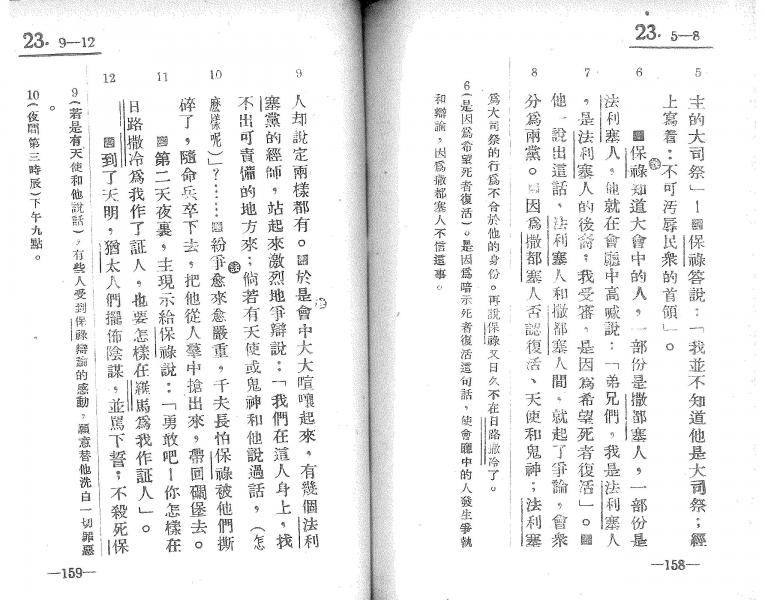 23. 5—8
5 主的大司祭」！保祿答說：「我並不知道他是大司祭；經
上寫着：不可汚辱民衆的首領」。
6 保祿知道大會中的人，一部份是撒都塞人，一部份是
法利塞人，他就在會廳中高喊說：「弟兄們，我是法利塞人
7 ，是法利塞人的後裔；我受審，是因爲希望死者復活」。
他一說出這話，法利塞人和撒都塞人間，就起了爭論，會衆
8 分爲兩黨。因爲撒都塞人否認復活、天使和鬼神；法利塞
爲大司祭的行爲不合於他的身份。再說保祿又日久不在日路撒冷了。
6（是因爲希望死者復活）。是因爲暗示死者復活這句話，使會廳中的人發生爭執
和辯論，因爲撒都塞人不信這事。
—158—
23. 9—12
9 人却說定兩樣都有。於是會中大大喧嚷起來，有幾個法利
塞黨的經師，站起來激烈地爭辯說：「我們在這人身上，找
不出可責備的地方來；倘若有天使或鬼神和他說過話，（怎
10 麽樣呢）」？……紛爭愈來愈嚴重，千夫長怕保祿被他們撕
碎了，隨命兵卒下去，把他從人羣中搶出來，帶回碉堡去。
11 第二天夜裏，主現示給保祿說：「勇敢吧！你怎樣在
日路撒冷爲我作了証人，也要怎樣在羅馬爲我作証人」。
12 到了天明，猶太人們擺佈陰謀，並罵下誓；不殺死保
9（若是有天使和他說話），有些人受到保祿辯論的感動，願意替他洗白一切罪惡
。
10（夜間第三時辰）下午九點。
—159—